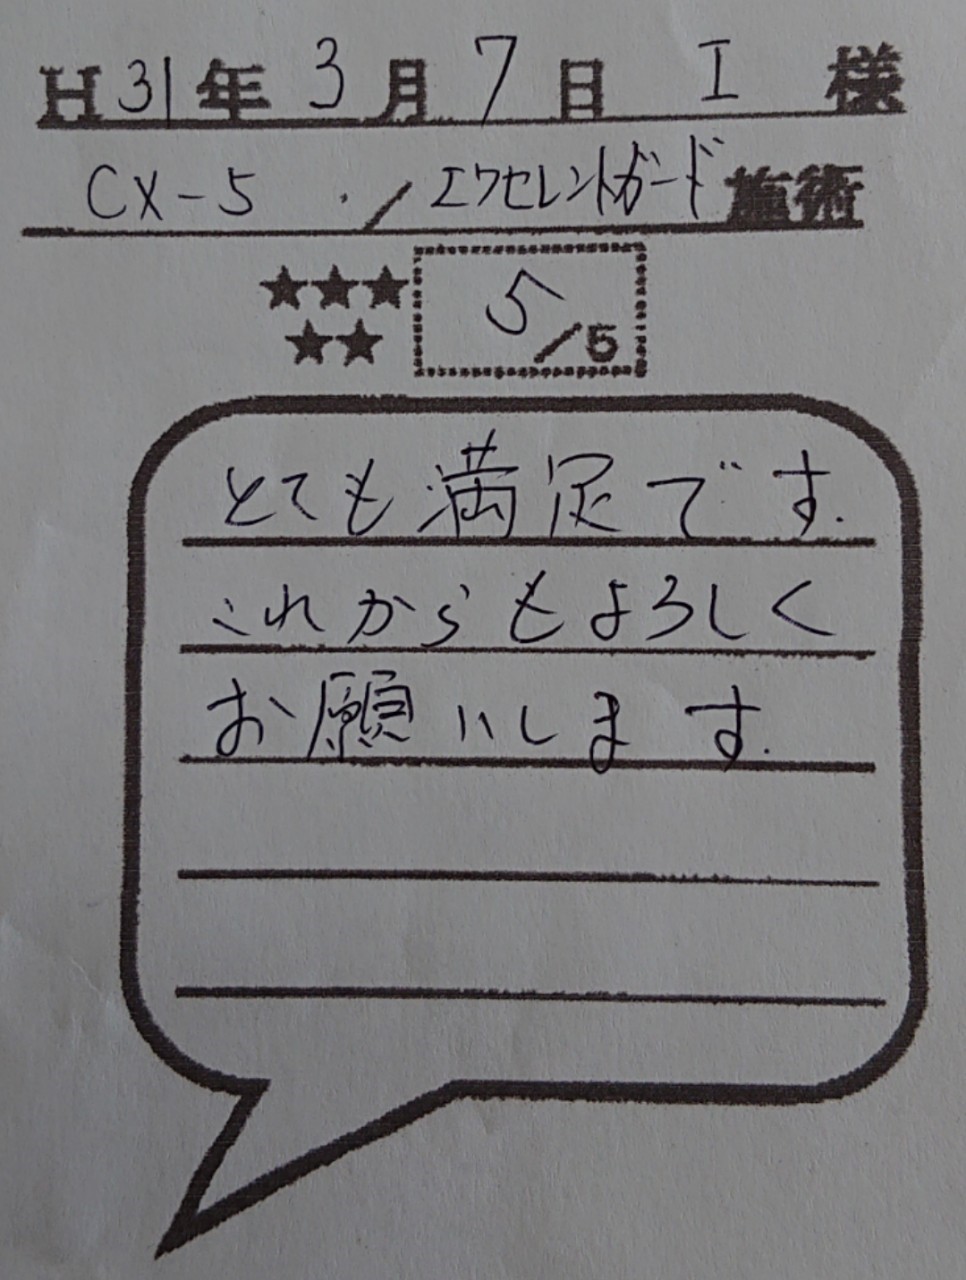 H31年3月7日 I 様
CX-5 ・/エクセレントガード施術
★★★
★★
5/5
とても満足です.
これからもよろしく
お願いします.